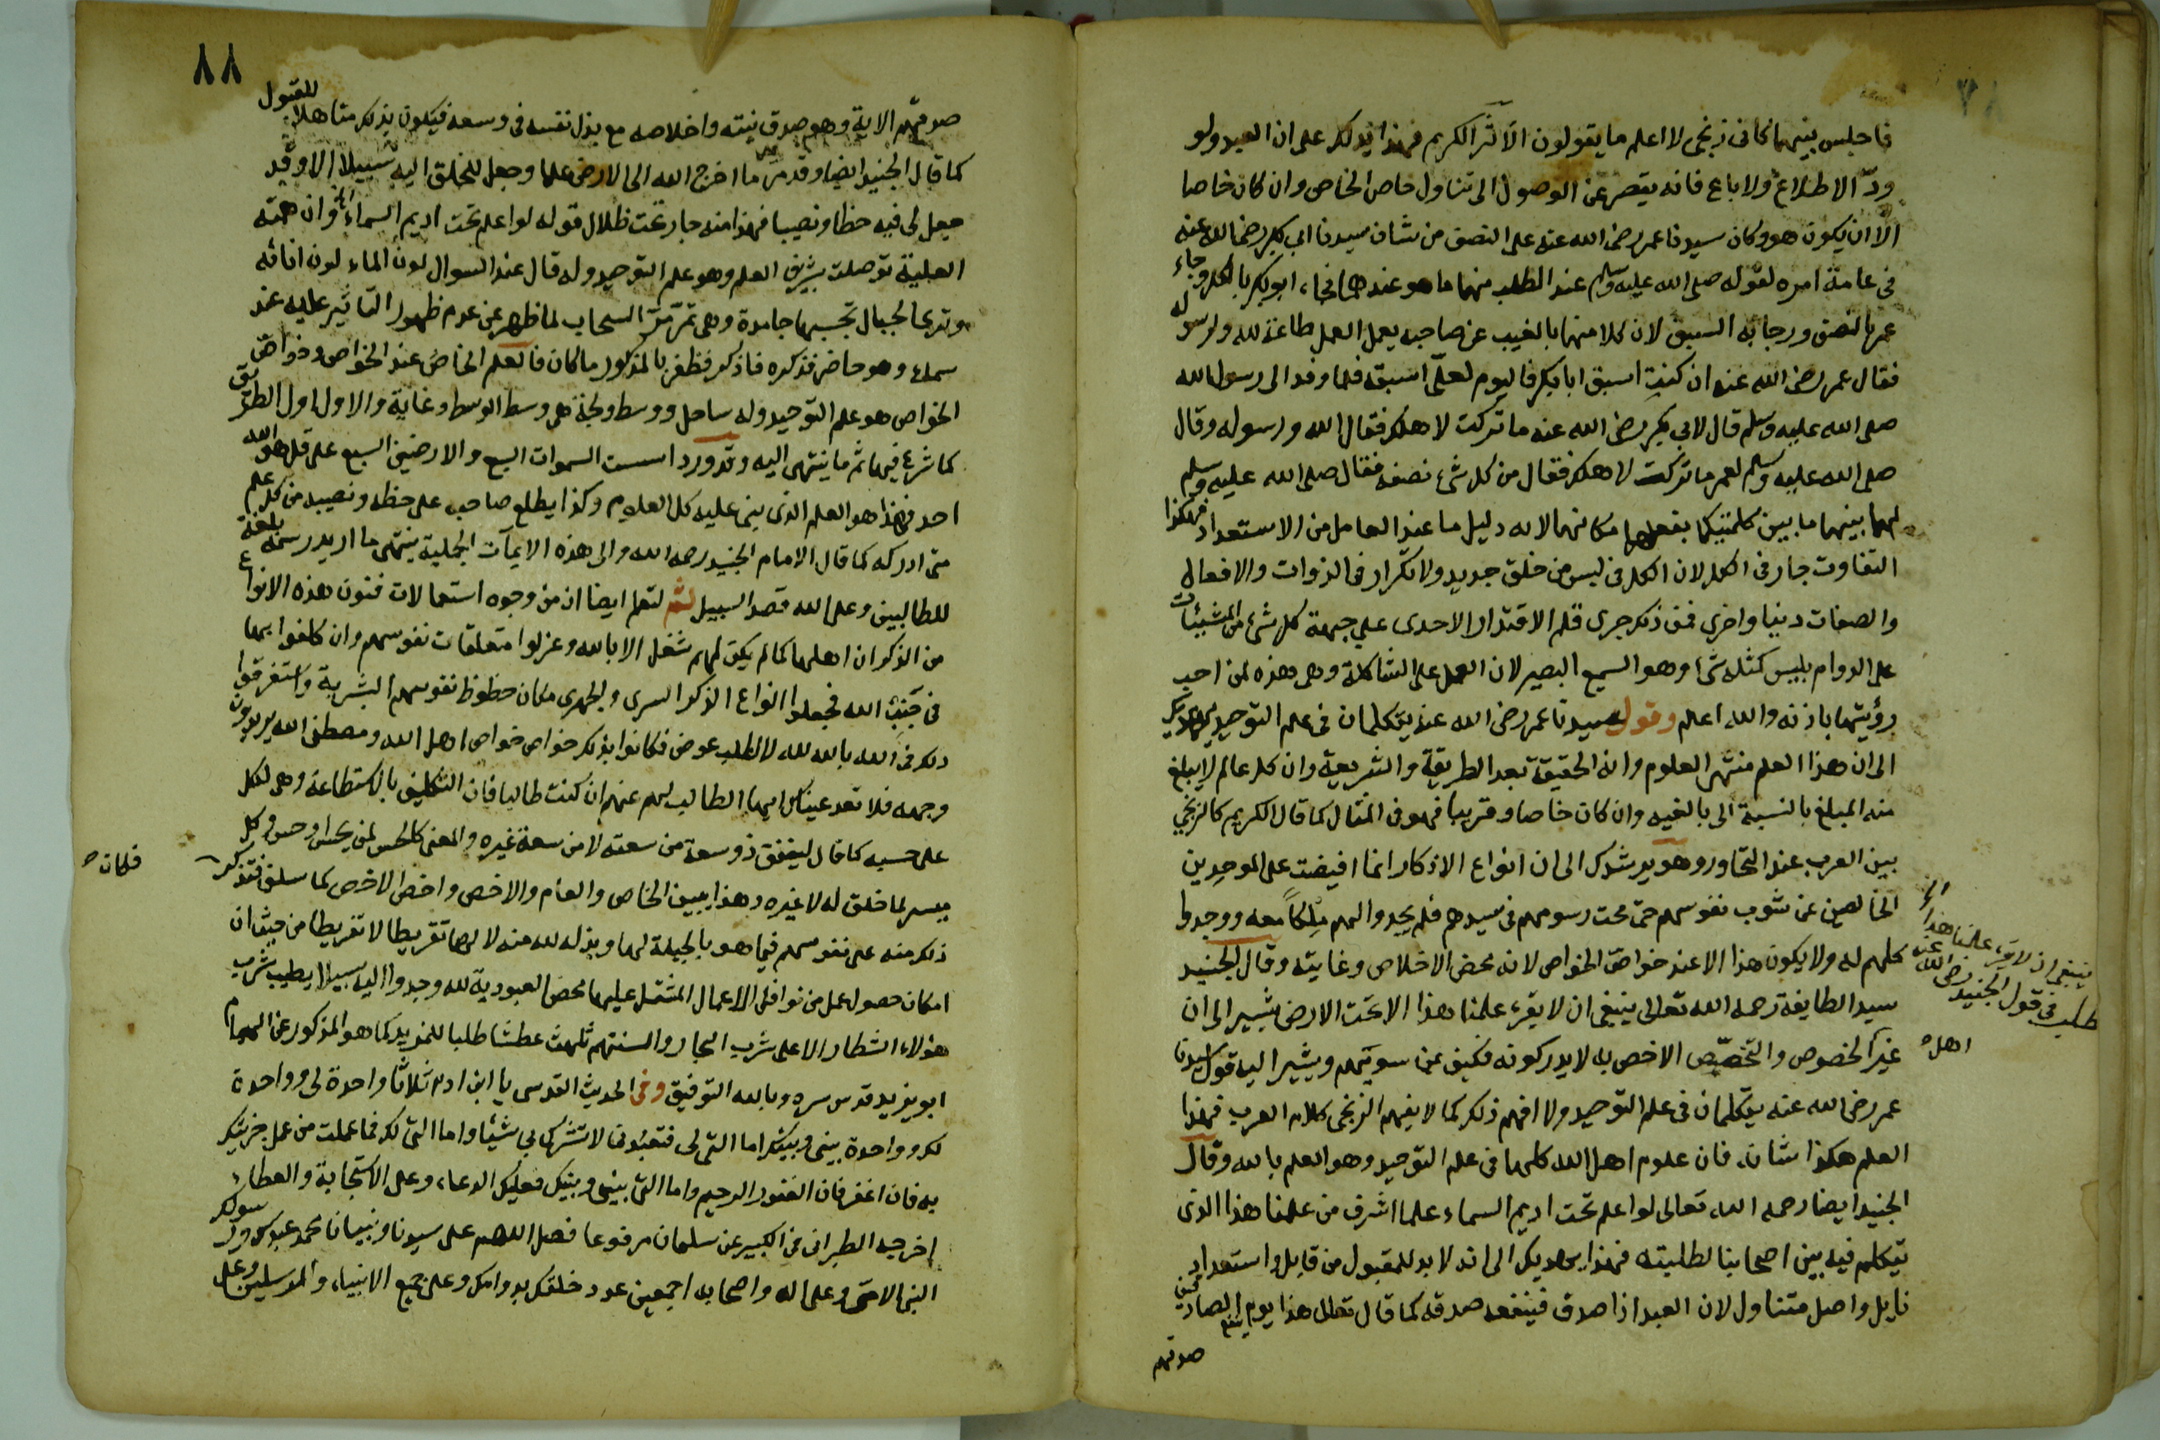 فاجلس بينهما كاني زنجي لا اعلم ما يقولون الاثر الكريم فهذا يدلك على ان العبد ولو
ودّ الاطلاع ولا باع فانه يقصر عن الوصول الى تناول خاص الخاص وان كان خاصا
الا ان يكون هو وكان سيدنا عمر رضي الله عنه على النصف من شان سيدنا ابي بكر رضي الله عنه
في عامة امره لقوله صلى الله عليه وسلم عند الطلب منهما ما هو عندهما فجاء ابو بكر بالكل وجاء
عمر بالنصف ورجا به السبق لان كلا منهما بالغيب عن صاحبه يعمل العمل طاعة لله ولرسوله
فقال عمر رضي الله عنه ان كنت اسبق ابا بكر فاليوم لعلّي اسبقه فلما وفد الى رسول الله
صلى الله عليه وسلم قال لابي بكر رضي الله عنه ما تركت لاهلك فقال الله ورسوله وقال
صلى الله عليه وسلم لعمر ما تركت لاهلك فقال من كل شئ نصفه فقال صلى الله عليه وسلم
لهما بينهما ما بين كلمتيكما مكانهما لانه دليل ما عند العامل من الاستعداد فهكذا
التفاوت جار في الكل لان الكل في لبس من خلق جديد ولا تكرار في الذوات والافعال
والصفات دنيا واخرى فمن ذكر جرى قلم الاقتدار الاحدى على جبهة كل شئ من المشيئات
على الدوام بليس كمثله شئ وهو السميع البصير لان العمل على الشاكلة وهى هذه لمن احب
رؤيتها باذنه والله اعلم وقول سيدنا عمر رضي الله عنه يتكلمان في علم التوحيد
الى ان هذا العلم منتهى العلوم وانه الحقيقة بعد الطريقة والشريعة وان كل عالم لا يبلغ
منه المبلغ بالنسبة الى بالغيه وان كان خاصا وقريبا فهو في المثال كما قال الكريم كالزنجي
بين العرب عند التحاور وهو يرشدك الى ان انواع الاذكار انما افيضت على الموحدين
الخالصين عن شوب نفوسهم حتى محت رسومهم في سيدهم فلم يجدوا لهم مِلكاً معه ووجدوا
كلهم له ولا يكون هذا الا عند خواصّ الخواص لانه محض الاخلاص وغايته وقال الجنيد
سيد الطايفة رحمه الله تعالى ينبغي ان لا يقرء علمنا هذا الا تحت الارض يشير الى ان
غير الخصوص والتخصّص الاخص به لا يدركونه فكيف عن سويّهم ويشير اليه قول سيدنا
عمر رضي الله عنه يتكلمان في علم التوحيد ولا افهم ذلك كما لا يفهم الزنجي كلام العرب فهذا
العلم هكذا شانه فان علوم اهل الله كلها في علم التوحيد وهو العلم بالله وقال
الجنيد ايضا رحمه الله تعالى لو اعلم تحت اديم السماء علما اشرف من علمنا هذا الذى
يتكلم فيه بين اصحابنا لطلبته فهذا الى انه لا بد للمقبول من قابل واستعداد
نايل واصل متناول لان العبد اذا صدق فينفعه صدقه كما قال تعالى هذا يوم ينفع الصادقين
صدقهم
ينبغي ان لا يقرء علمنا هذا الخ
طلب في قول الجنيد رضي الله عنه
اهل
٨٨
صدقهم الاية وهو صدق نيته واخلاصه مع بذل نفسه في وسعه فيكون بذلك متاهلا للقبول
كما قال الجنيد ايضا وقد مرّ ما اخرج الله الى الارض علما وجعل للخلق اليه سبيلا الا وقد
جعل لي فيه حظا ونصيبا فهذا منه جار تحت ظلال قوله لو اعلم تحت اديم السماء الخ وان همته
العلية توصلت بشريف العلم وهو علم التوحيد وله قال عند السوال لون الماء لون انائه
وترى الجبال تحسبها جامدة وهى تمر مرّ السحاب لما ظهر عن عدم ظهور التاثير عليه عند
سماع وهو حاضر فذكره فاذكر فظفر بالمذكور ما كان فالعلم الخاص عند الخواص وخواصّ
الخواص هو علم التوحيد وله ساحل ووسط ولجة هى وسط الوسط وغاية والاول اول الطريق
كما شرع فيها ثم ما ينتهى اليه وقد ورد اسست السموات السبع والارضين السبع على قل هو الله
احد فهذا هو العلم الذى بنى عليه كل العلوم وكذا يطلع صاحبه على حظه ونصيبه من كل علم
متى ادركه كما قال الامام الجنيد رحمه الله والى هذه الايمآت الجلية ينتهى ما اريد رسمه بلغة
للطالبين وعلى الله قصد السبيل ثم لتعلم ايضا ان من وجوه استعمالات فنون هذه الانواع
من الذكر ان اهلها كما لم يكن لهم شغل الا بالله وعزلوا متعلقات نفوسهم وان كلفوا بها
في جَنْب الله فجعلوا انواع الذكر السرى والجهرى مكان حظوظ نفوسهم البشرية واستغرقوا
ذلك في الله بالله لله لا لطلب عوض فكانوا بذلك خواص خواص اهل الله ومصطفى الله يريدون
وجهه فلا تعد عيناك ايها الطالب لهم عنهم ان كنت طالبا فان التكليف بالاستطاعة وهى لكل
على حسبه كما قال لينفق ذو سعة من سعته لا من سعة غيره والمعنى كالحس لمن يحس وكل
ميسر لما خلق له لا غيره وهذا يبين الخاص والعام والاخص واخص الاخص كما سلق فتذكر
ذلك منه على نفوسهم فيما هو بالجبلة لها وبذله لله منه لا لها تقريطا لا تفريطا من حيث ان
امكان حصول عمل من نوافل الاعمال المشتمل عليها محض العبودية لله وجدوا اليه سبيلا يطيب شرب
هؤلاء الشطار الا على شرب البحار والسنتهم تلهث عطشا طلبا للمزيد كما هو المذكور عن الهمام
ابو يزيد قدس سره وبالله التوفيق وفي الحديث القدسى يا ابن ادم ثلاثا واحدة لى وواحدة
لك وواحدة بينى وبينك اما التى لى فتعبدنى لا تشرك بى شيئا واما التى لك فما عملت من عمل جزيتك
به فان اغفر فانا الغفور الرحيم واما التى بينى وبينك فعليك الدعاء وعلى الاستجابة والعطاء
اخرجه الطبرانى فى الكبير عن سلمان مرفوعا فصل اللهم على سيدنا ونبينا محمد عبدك ورسولك
النبى الامى وعلى اله واصحابه اجمعين عدد خلقك بدوامك وعلى جميع الانبياء والمرسلين وعلى
فكان